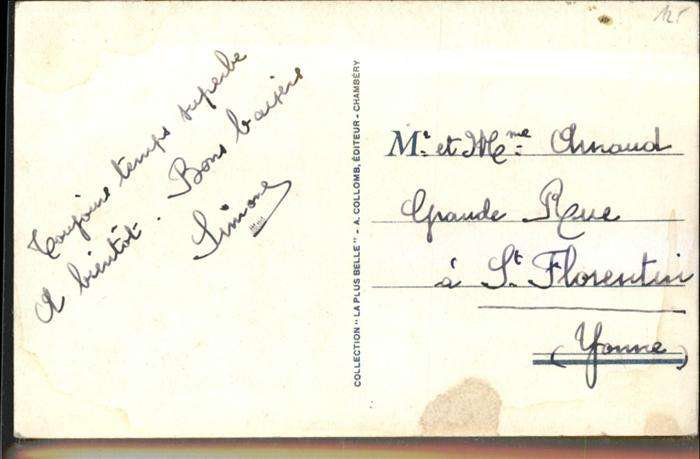 125
Toujours temps superbe
A bientôt. Bons baisers
Simone
COLLECTION "LA PLUS BELLE" - A. COLLOMB, ÉDITEUR - CHAMBÉRY
Mr et Mme Arnaud
Grande Rue
à St Florentin
(Yonne)